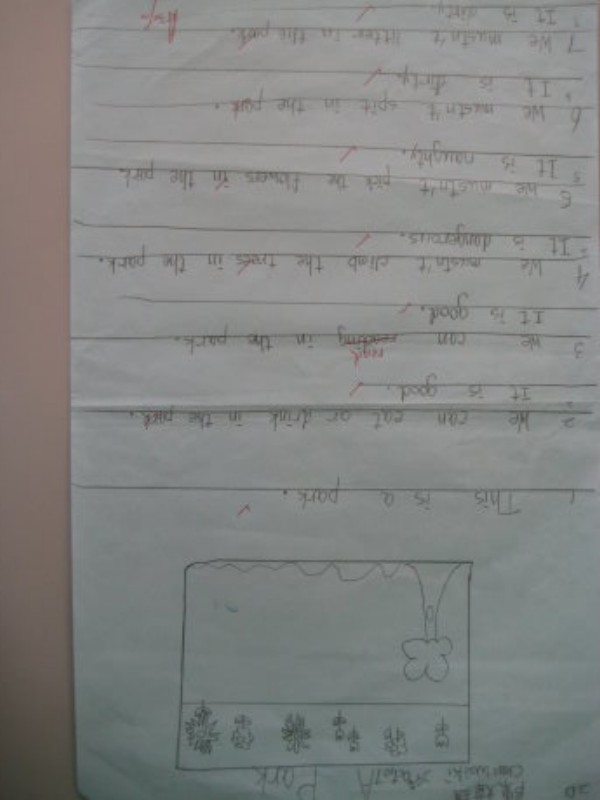 2D
A Park
1 This is a park.
2 We can eat or drink in the park.
It is good.
read
3 We can reading in the park.
It is good.
4 We mustn't climb the trees in the park.
It is dangerous.
5 We mustn't pick the flowers in the park
It is naughty.
6 We mustn't spit in the park.
It is dirty.
7 We mustn't litter in the park.
It is dirty.